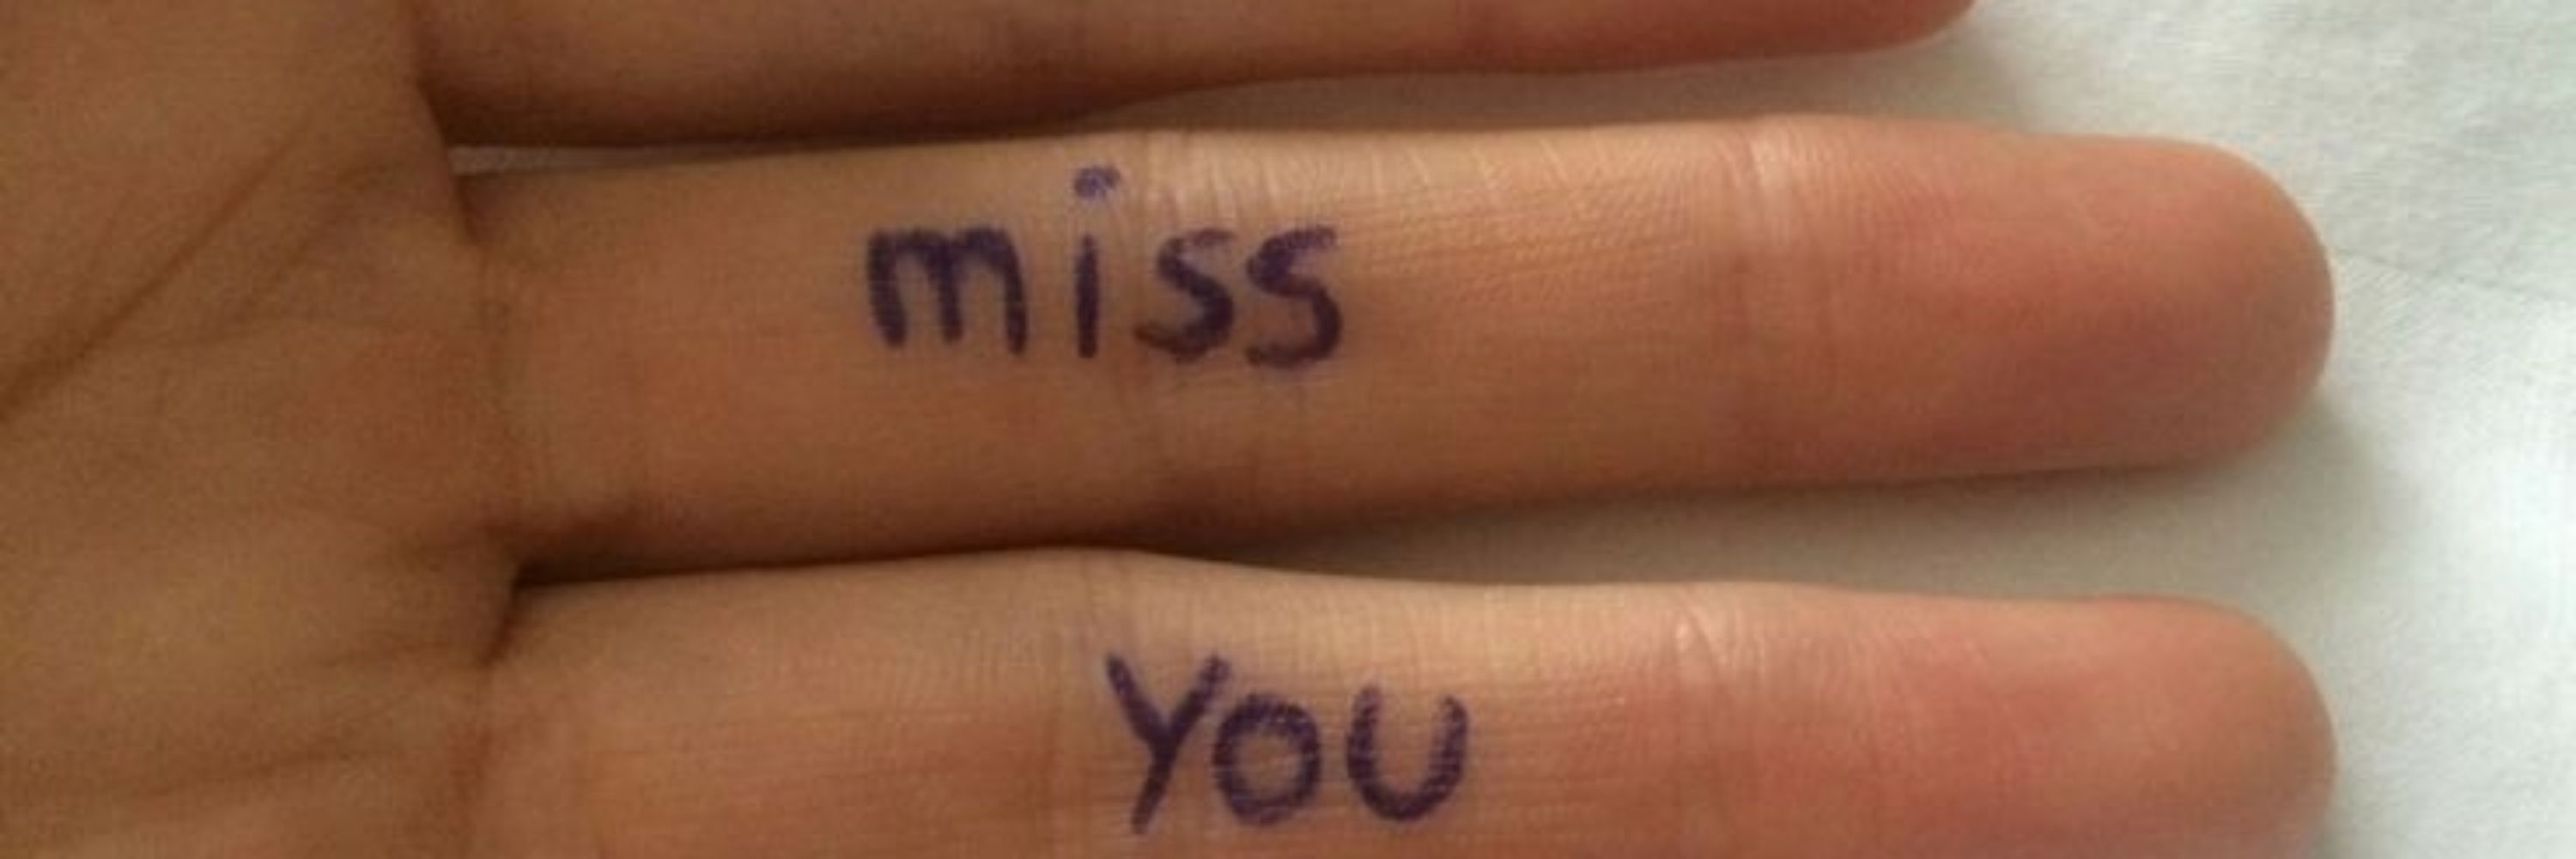 miss
You